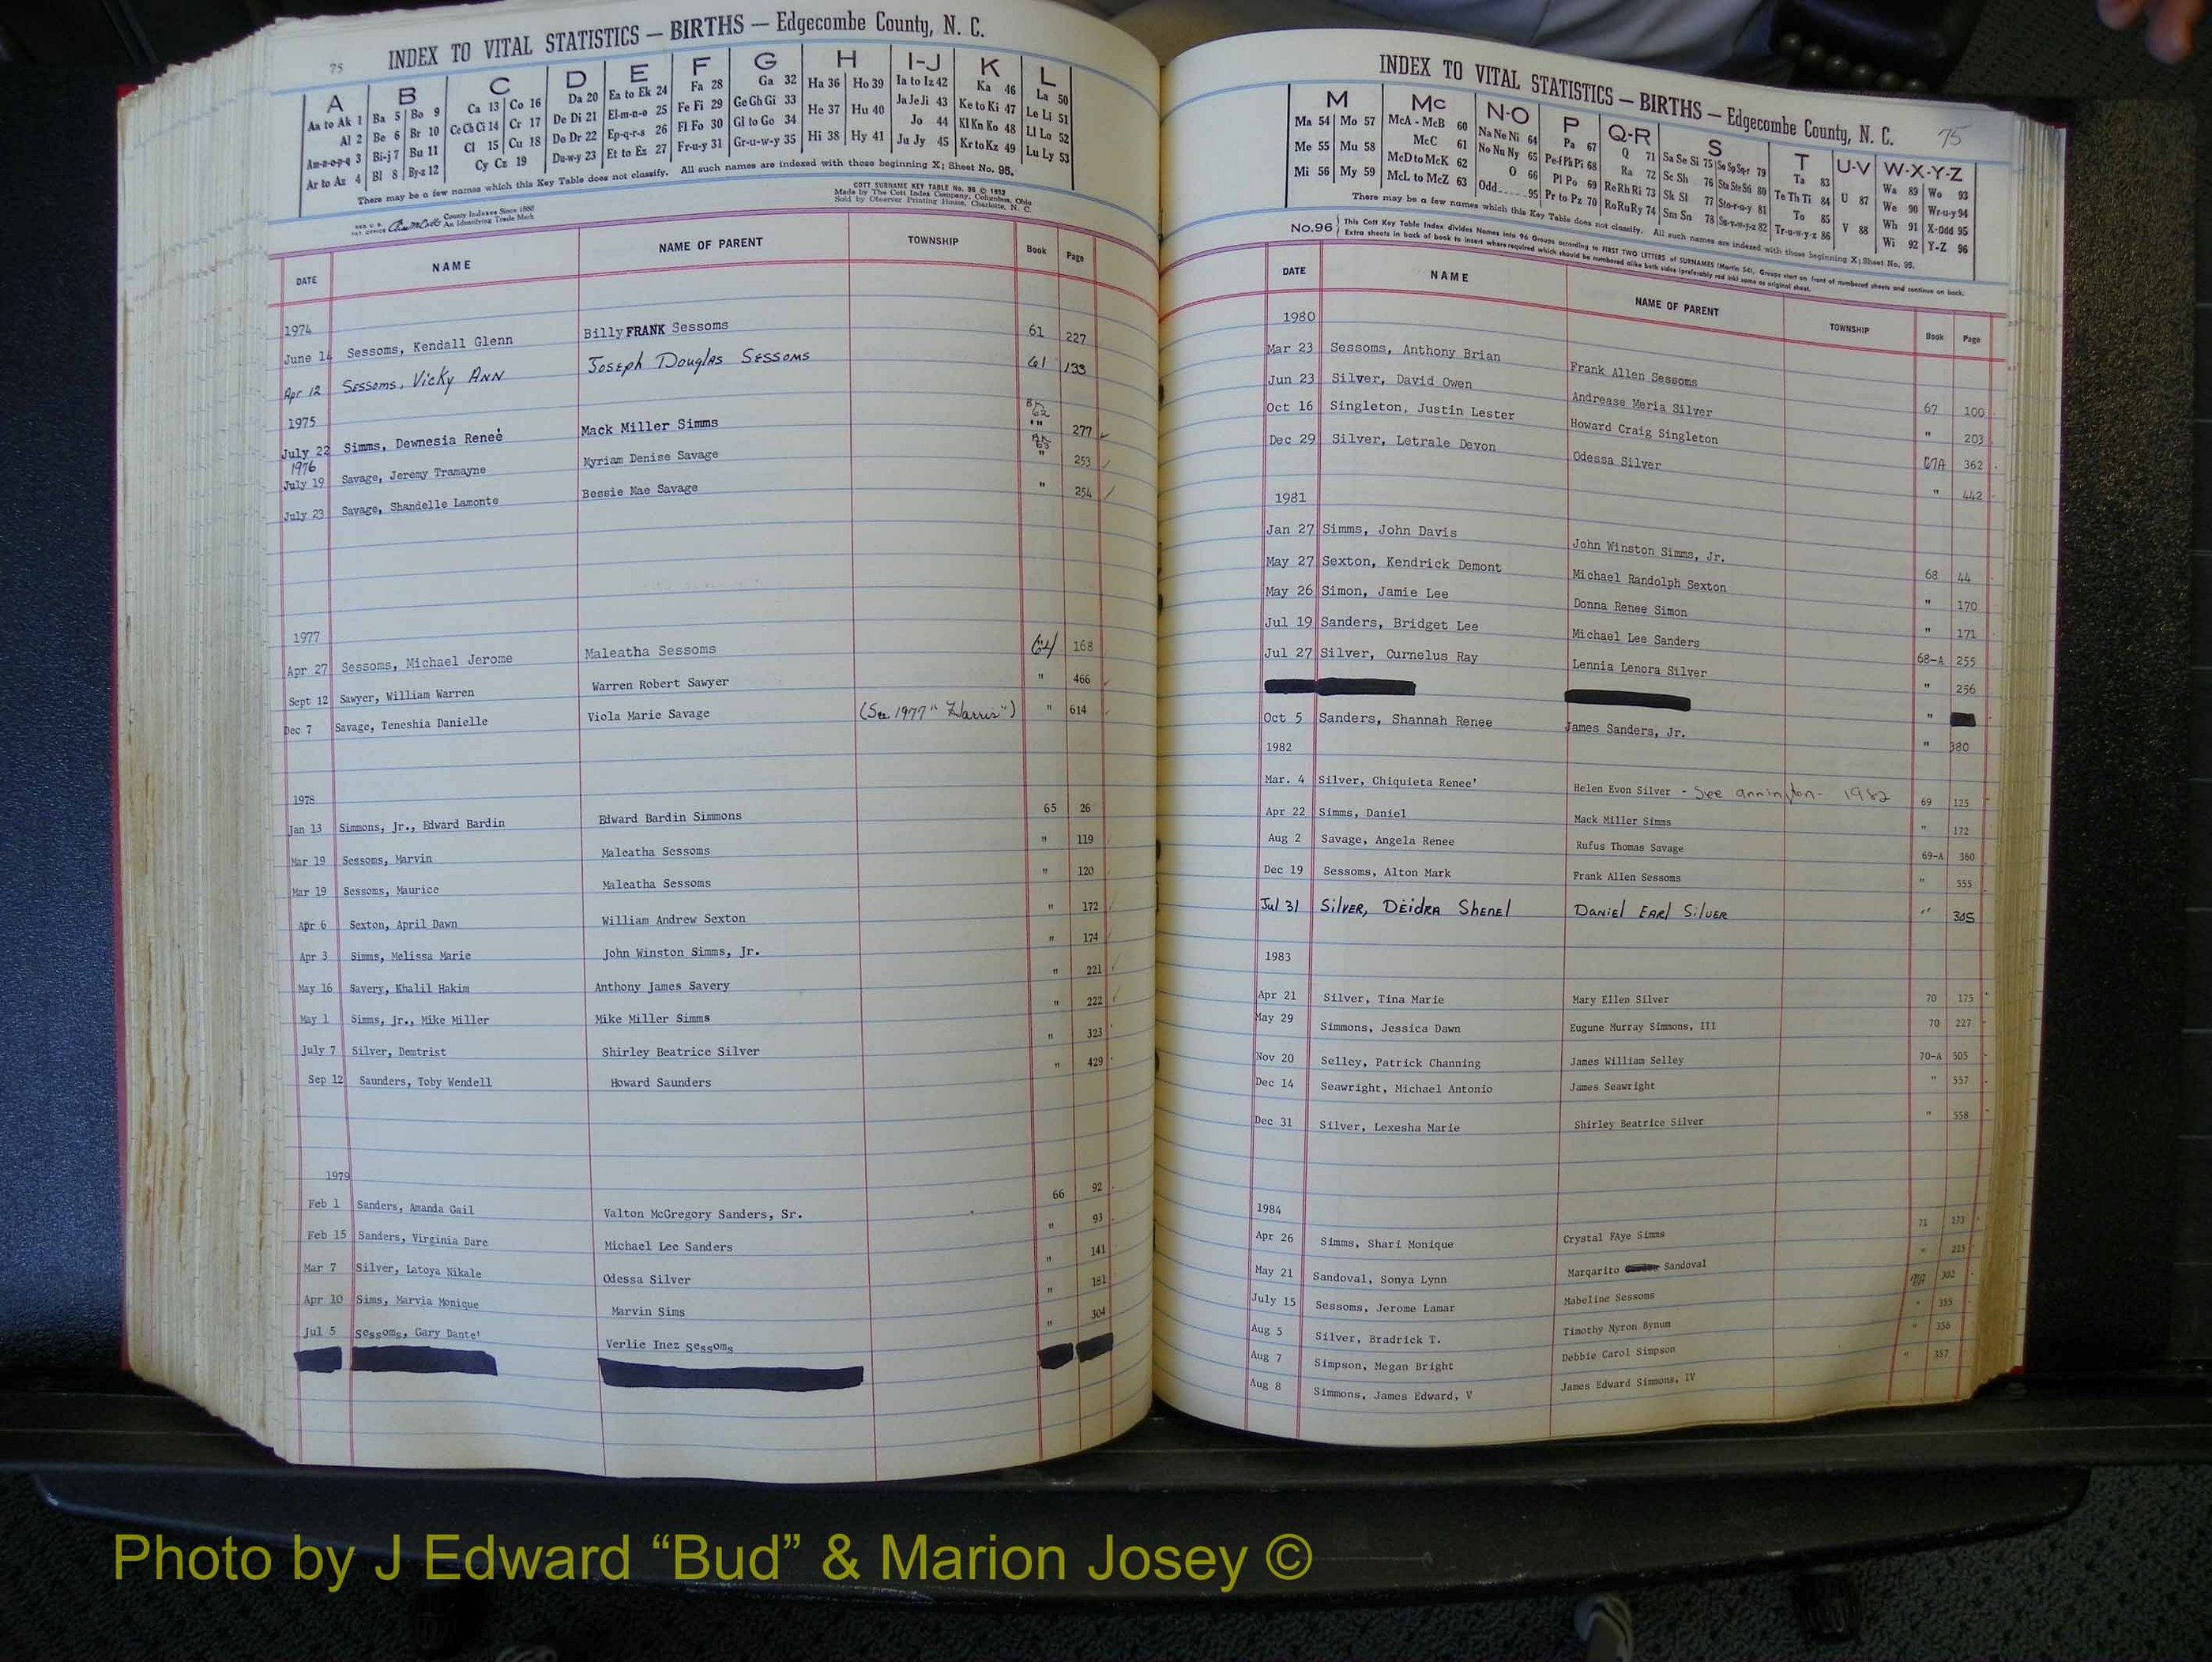 75 INDEX TO VITAL STATISTICS — BIRTHS — Edgecombe County, N. C.
A B C D E F G H I-J K L
Aa to Ak 1 Ba 5 Bo 9 Ca 13 Co 16 Da 20 Ea to Ek 24 Fa 28 Ga 32 Ha 36 Ho 39 Ia to Iz 42 Ka 46 La 50
Al 2 Be 6 Br 10 Ce Ch Ci 14 Cr 17 De Di 21 El-m-n-o 25 Fe Fi 29 Ge Gh Gi 33 He 37 Hu 40 Ja Je Ji 43 Ke to Ki 47 Le Li 51
Am-n-o-p-q 3 Bi-j 7 Bu 11 Cl 15 Cu 18 Do Dr 22 Ep-q-r-s 26 Fl Fo 30 Gl to Go 34 Hi 38 Hy 41 Jo 44 Kl Kn Ko 48 Ll Lo 52
Ar to Az 4 Bl 8 By-z 12 Cy Cz 19 Du-w-y 23 Et to Ez 27 Fr-u-y 31 Gr-u-w-y 35 Ju Jy 45 Kr to Kz 49 Lu Ly 53
There may be a few names which this Key Table does not classify. All such names are indexed with those beginning X; Sheet No. 95.
County Indexes Since 1888
An Identifying Trade Mark
COTT SURNAME KEY TABLE No. 96 © 1952
Made by The Cott Index Company, Columbus, Ohio
Sold by Observer Printing House, Charlotte, N. C.
DATE NAME NAME OF PARENT TOWNSHIP Book Page
1974
June 14 Sessoms, Kendall Glenn Billy FRANK Sessoms 61 227
Apr 12 Sessoms, Vicky ANN Joseph Douglas Sessoms 61 133
1975
July 22 Simms, Dewnesia Renee' Mack Miller Simms BK 62 " 277
1976
July 19 Savage, Jeremy Tramayne Myriam Denise Savage BK 63 " 253
July 23 Savage, Shandelle Lamonte Bessie Mae Savage " 254
1977
Apr 27 Sessoms, Michael Jerome Maleatha Sessoms 64 168
Sept 12 Sawyer, William Warren Warren Robert Sawyer " 466
Dec 7 Savage, Teneshia Danielle Viola Marie Savage (See 1977 "Harris") " 614
1978
Jan 13 Simmons, Jr., Edward Bardin Edward Bardin Simmons 65 26
Mar 19 Sessoms, Marvin Maleatha Sessoms " 119
Mar 19 Sessoms, Maurice Maleatha Sessoms " 120
Apr 6 Sexton, April Dawn William Andrew Sexton " 172
Apr 3 Simms, Melissa Marie John Winston Simms, Jr. " 174
May 16 Savery, Khalil Hakim Anthony James Savery " 221
May 1 Simms, Jr., Mike Miller Mike Miller Simms " 222
July 7 Silver, Demtrist Shirley Beatrice Silver " 323
Sep 12 Saunders, Toby Wendell Howard Saunders " 429
1979
Feb 1 Sanders, Amanda Gail Valton McGregory Sanders, Sr. 66 92
Feb 15 Sanders, Virginia Dare Michael Lee Sanders " 93
Mar 7 Silver, Latoya Nikale Odessa Silver " 141
Apr 10 Sims, Marvia Monique Marvin Sims " 181
Jul 5 Sessoms, Gary Dante' Verlie Inez Sessoms " 304
INDEX TO VITAL STATISTICS — BIRTHS — Edgecombe County, N. C. 75
M Mc N-O P Q-R S T U-V W-X-Y-Z
Ma 54 Mo 57 McA - McB 60 Na Ne Ni 64 Pa 67 Q 71 Sa Se Si 75 So Sp Sq-r 79 Ta 83 U 87 Wa 89 Wo 93
Me 55 Mu 58 McC 61 No Nu Ny 65 Pe-f Ph Pi 68 Ra 72 Sc Sh 76 Sta Ste Sti 80 Te Th Ti 84 We 90 Wr-u-y 94
Mi 56 My 59 McD to McK 62 O 66 Pl Po 69 Re Rh Ri 73 Sk Sl 77 Sto-r-u-y 81 To 85 V 88 Wh 91 X-Odd 95
McL to McZ 63 Odd 95 Pr to Pz 70 Ro Ru Ry 74 Sm Sn 78 Su-v-w-y-z 82 Tr-u-w-y-z 86 Wi 92 Y-Z 96
There may be a few names which this Key Table does not classify. All such names are indexed with those beginning X; Sheet No. 95.
No. 96 This Cott Key Table Index divides Names into 96 Groups according to FIRST TWO LETTERS of SURNAMES (Martin 54). Groups start on front of numbered sheets and continue on back.
Extra sheets in back of book to insert where required which should be numbered alike both sides (preferably red ink) same as original sheet.
DATE NAME NAME OF PARENT TOWNSHIP Book Page
1980
Mar 23 Sessoms, Anthony Brian Frank Allen Sessoms 67 100
Jun 23 Silver, David Owen Andrease Meria Silver " 203
Oct 16 Singleton, Justin Lester Howard Craig Singleton 67A 362
Dec 29 Silver, Letrale Devon Odessa Silver " 442
1981
Jan 27 Simms, John Davis John Winston Simms, Jr. 68 44
May 27 Sexton, Kendrick Demont Michael Randolph Sexton " 170
May 26 Simon, Jamie Lee Donna Renee Simon " 171
Jul 19 Sanders, Bridget Lee Michael Lee Sanders 68-A 255
Jul 27 Silver, Curnelus Ray Lennia Lenora Silver " 256
"
Oct 5 Sanders, Shannah Renee James Sanders, Jr. " 380
1982
Mar. 4 Silver, Chiquieta Renee' Helen Evon Silver - See annington - 1982 69 125
Apr 22 Simms, Daniel Mack Miller Simms " 172
Aug 2 Savage, Angela Renee Rufus Thomas Savage 69-A 360
Dec 19 Sessoms, Alton Mark Frank Allen Sessoms " 555
Jul 31 Silver, Deidra Shenel Daniel Earl Silver " 305
1983
Apr 21 Silver, Tina Marie Mary Ellen Silver 70 175
May 29 Simmons, Jessica Dawn Eugune Murray Simmons, III 70 227
Nov 20 Selley, Patrick Channing James William Selley 70-A 505
Dec 14 Seawright, Michael Antonio James Seawright " 557
Dec 31 Silver, Lexesha Marie Shirley Beatrice Silver " 558
1984
Apr 26 Simms, Shari Monique Crystal FAye Simms 71 173
May 21 Sandoval, Sonya Lynn Marqarito Sandoval "
July 15 Sessoms, Jerome Lamar Mabeline Sessoms 302
Aug 5 Silver, Bradrick T. Timothy Myron Bynum " 355
Aug 7 Simpson, Megan Bright Debbie Carol Simpson " 356
Aug 8 Simmons, James Edward, V James Edward Simmons, IV " 357
Photo by J Edward “Bud” & Marion Josey ©